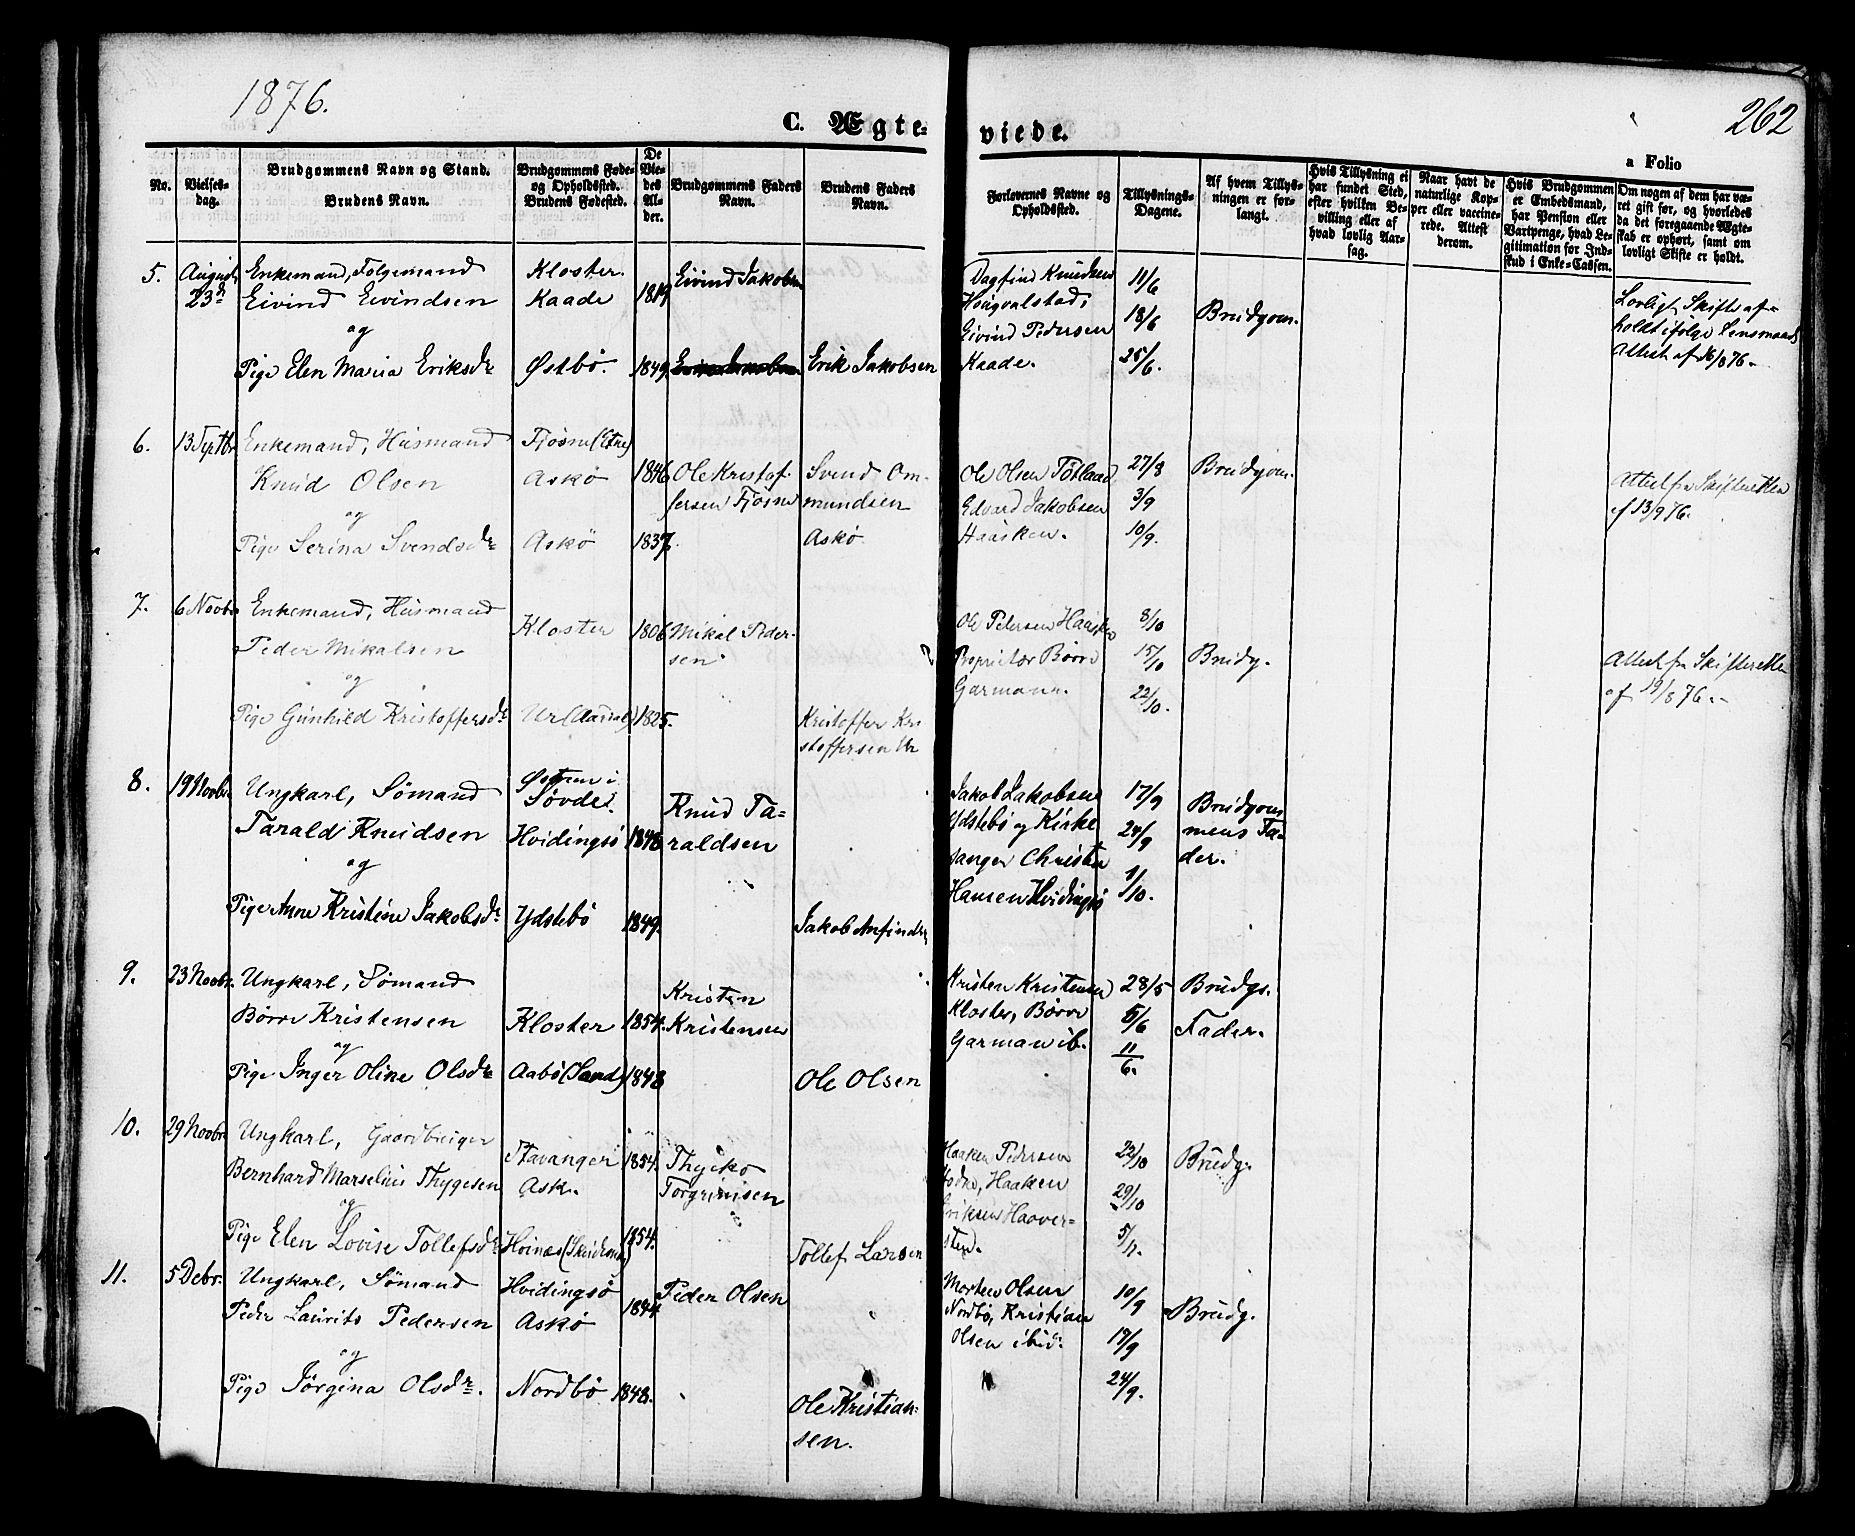 1876.
262
C. Ægte-
viede.
a Folio
No.
Vielses-
dag.
Brudgommens Navn og Stand.
Brudens Navn.
Brudgommens Føde-
og Opholdssted.
Brudens Fødested.
De
Vie-
des
Al-
der.
Brudgommens Faders
Navn.
Brudens Faders
Navn.
Forlovernes Navne og
Opholdssted.
Tillysnings-
Dagene.
Af hvem Tillys-
ningen er for-
langt.
Hvis Tillysning ei
har fundet Sted,
efter hvilken Be-
villing eller af
hvad lovlig Aar-
sag.
Naar havt de
naturlige Kop-
per eller vaccine-
rede. Attest
derom.
Hvis Brudgommen
er Embedsmand,
har Pension eller
Vartpenge, hvad Le-
gitimation for Ind-
skud i Enke-Cassen.
Om nogen af dem har væ-
ret gift før, og hvorledes
da det foregaaende Ægte-
skab er ophørt, samt om
lovligt Skifte er holdt.
5. August 23d
Enkemand, Folgemand
Eivind Eivindsen
og
Pige Elen Maria Eriksdr
Kloster.
Kaade
Østbö.
1819
1849.
Eivind Jakobsen
Erik Jakobsen
Dagfin Knudsen
Eivind Pedersen
Kaade.
11/6
18/6
25/6.
Brudgom.
Lovligt Skifte af-
holdt ifolge Lensmands
Attest af 16/8 76.
6. 13 Septbr
Enkemand, Husmand
Knud Olsen
og
Pige Serina Svendsdr
Fjösne (Etne)
Askö
Askö
1846
1837.
Ole Kristof-
fersen Fjösne
Svend Om-
mundsen
Askö
Ole Olsen
Edvard Jakobsen
Haasken.
27/8
3/9
10/9.
Brudgom.
Attest fra Skifteretten
af 13/9 76.
7. 6 Novbr
Enkemand, Husmand
Peder Mikalsen
og
Pige Gunhild Kristoffersdr
Kloster
Ur (Aardal)
1806
1825.
Mikal Peder-
sen.
Kristoffer Kri-
stoffersen Ur
Ole Petersen Haasken
Proprietær Börre
Garmann.
8/10
15/10
22/10.
Brudg.
Attest fra Skifteretten
af 19/8 76.
8. 19 Novbr
Ungkarl, Sömand
Tarald Knudsen
og
Pige Anne Kristine Jakobsdr
Søvde.
Hvidingsö
Ydstebö
1848
1849.
Knud Ta-
raldsen
Jakob Anfindsen
Jakob Jakobsen
Ydstebö og Kirke
sanger Christen
Hansen Hvidingsö
17/9
24/9
1/10.
Brudgom
mens Fa-
der.
9. 23 Novbr.
Ungkarl, Sömand
Börre Kristensen
og
Pige Inger Oline Olsdr
Kloster
Aabö (Sand)
1854.
1848
Kristen
Kristensen
Ole Olsen
Kristen Kristensen
Kloster, Börre
Garman ib.
28/5
5/6
11/6.
Brudgs.
Fader.
10. 29 Novbr
Ungkarl, Gaardbruger
Bernhard Marselius Thygesen
og
Pige Elen Lovise Tollefsdr
Stavanger
Ask.
1854.
1854.
Torgrimsen
Tollef Larsen
Haaken Pedersen
Hodne, Haaken
Eriksen Haaver-
sten.
22/10
29/10
5/11.
Brudg.
11. 5 Debr.
Ungkarl, Sömand
Peder Laurits Pedersen
og
Pige Jörgina Olsdr.
Hvidingsö
Askö
Nordbö
1844
1848.
Peder Olsen
Ole Kristian-
sen.
Morten Olsen
Nordbö, Kristian
Olsen ibid.
10/9
17/9
24/9.
Brudg.